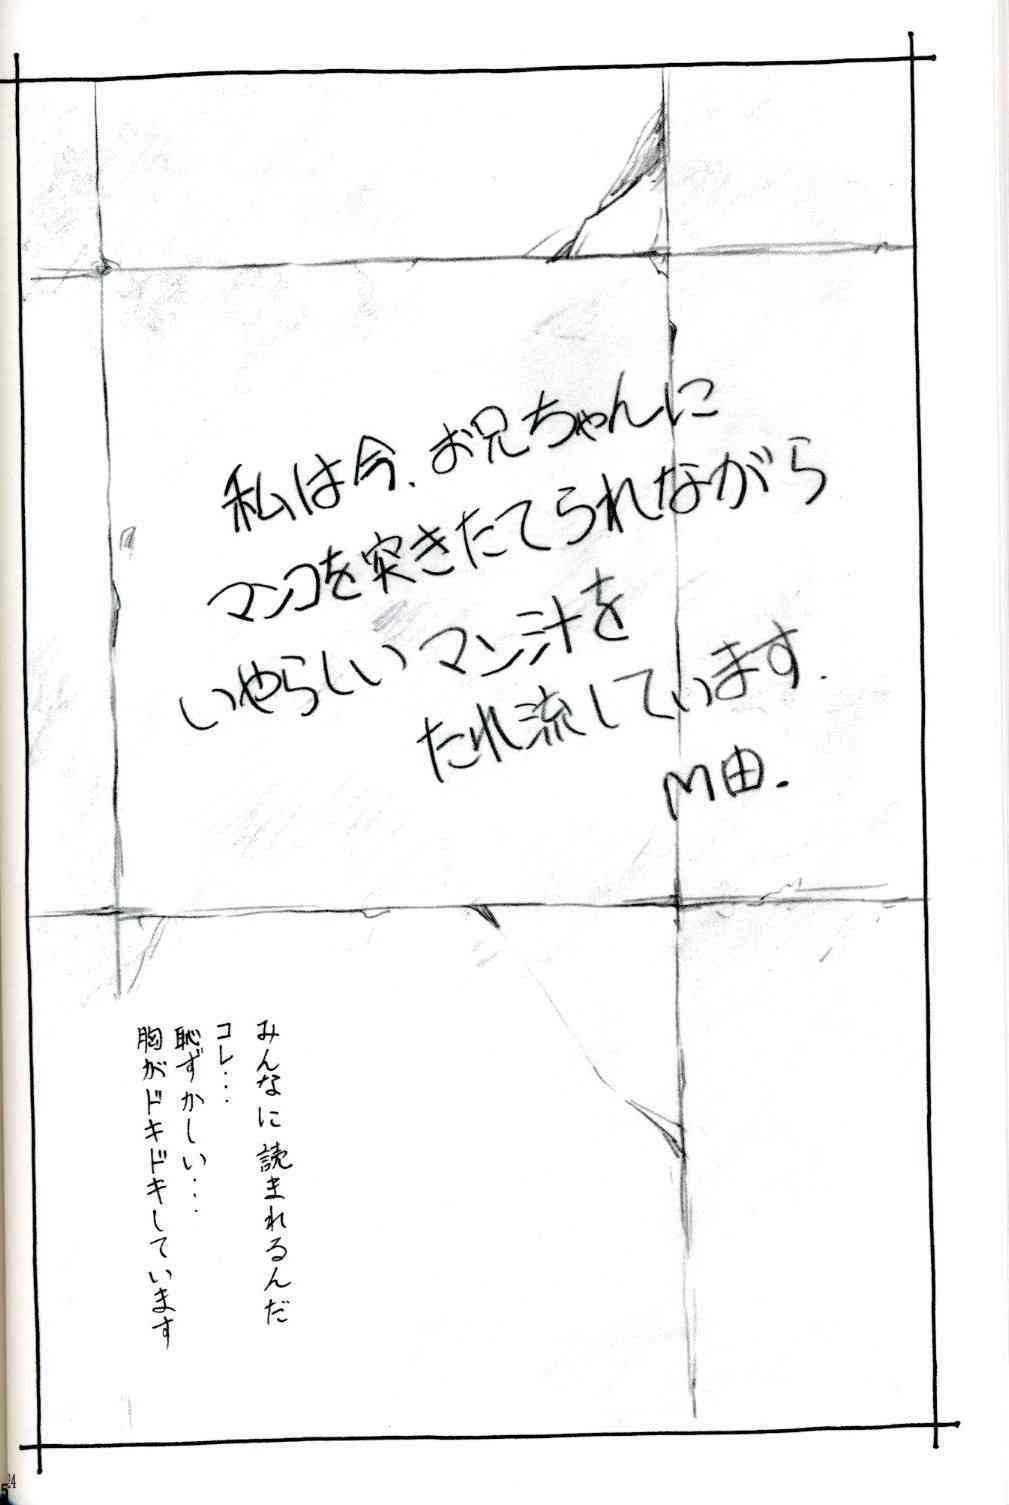 私は今、お兄ちゃんに
マンコを突きたてられながら
いやらしいマン汁を
たれ流しています.
M由.
みんなに読まれるんだ
コレ…
恥ずかしい…
胸がドキドキしています